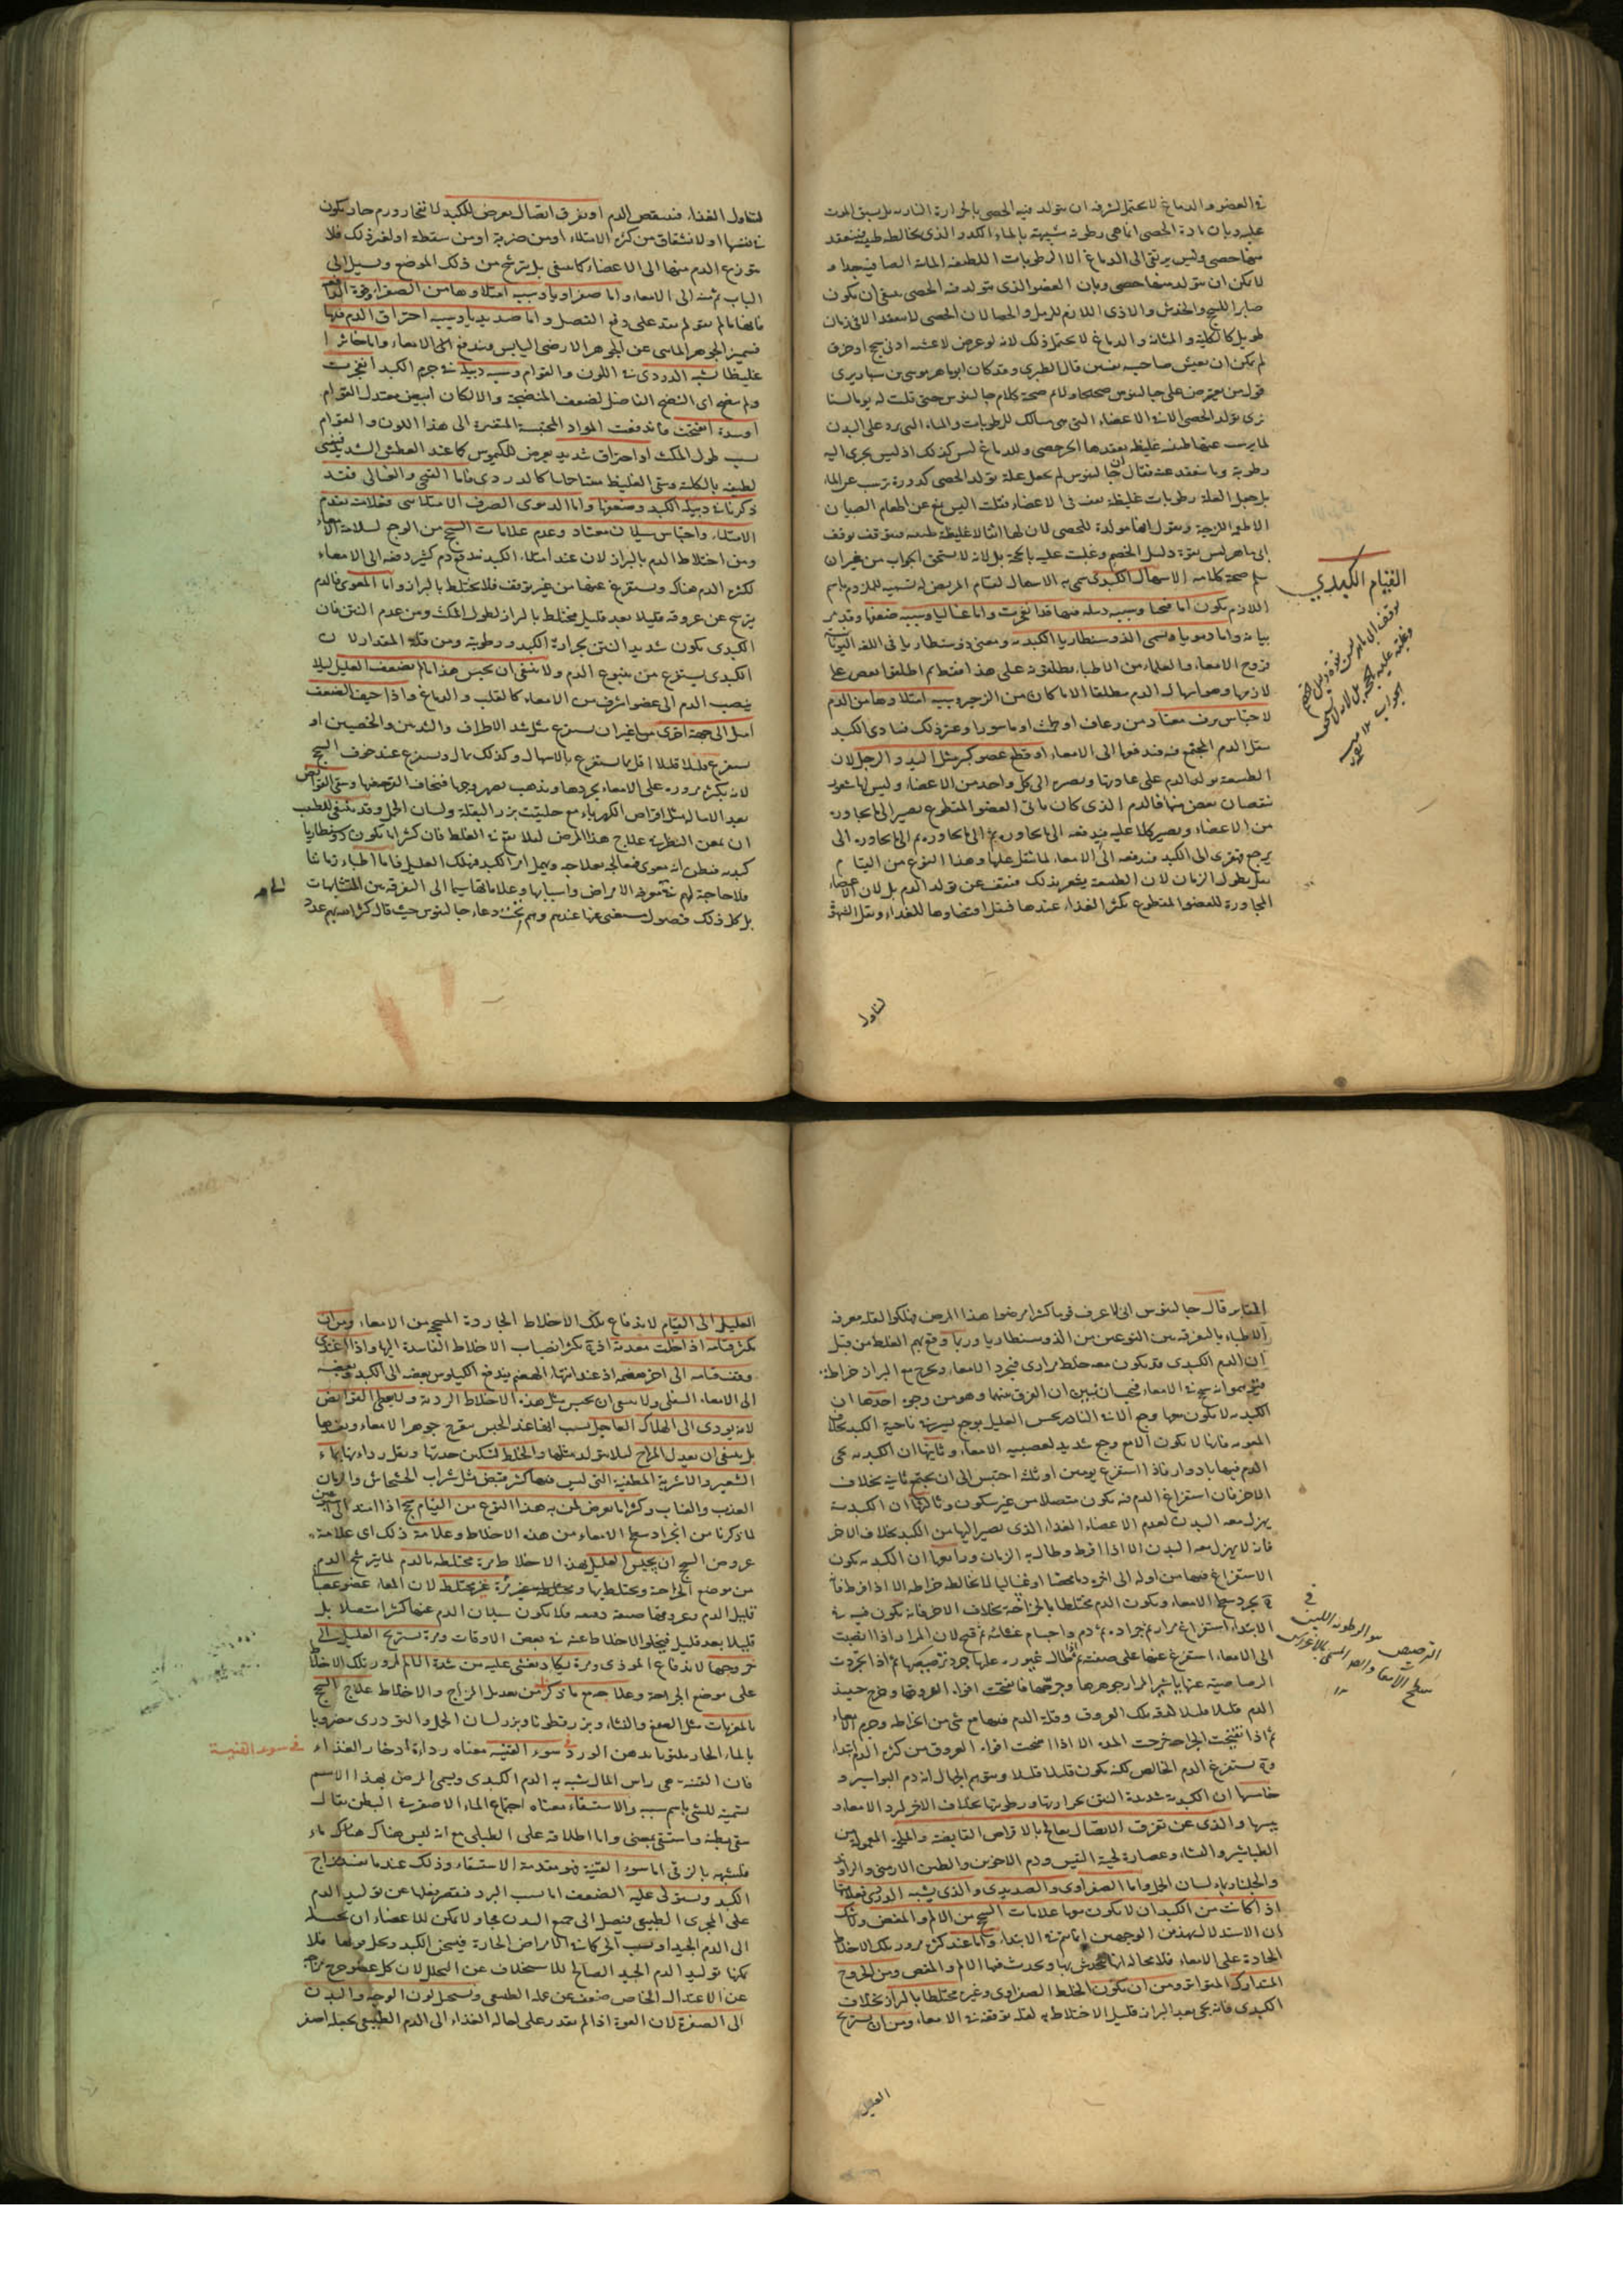 في العضو والدماغ لا يحتمل لشرفه ان يتولد فيه الحصى بالحرارة النارية بل يسبق الموت
عليه وبان مادة الحصى انما هي رطوبة شبيهة بالماء الكدر الذي يخالطه طين فينعقد
منها حصى وليس يرتقي الى الدماغ الا الرطوبات اللطيفة المائية الصافية جدا و
لا يمكن ان يتولد منها حصى وبان العضو الذي يتولد فيه الحصى ينبغي ان يكون
صابرا للسحج والخدش والاذى اللازم للرمل والحصا لان الحصى لا ينعقد الا في زمان
طويل كالكلية والمثانة والدماغ لا يحتمل ذلك لانه لو عرض لاغشيته ادنى سحج او خرق
لم يمكن ان يعيش صاحبه نفسين قال الطبري وقد كان ابو ماهر موسى بن سيار يرى
قول من يعترض على جالينوس صحيحا ولام صحة كلام جالينوس حتى قلت له يوما لسنا
نرى تولد الحصى الا في الاعضاء التي هي مسالك للرطوبات والماء التي يرد على البدن
لما يرسب عنها طين غليظ يعقدها الحر حصى والدماغ ليس كذلك اذ ليس يجري اليه
رطوبة وما ينعقد عنه فقال ان جالينوس لم يجعل علة تولد الحصى كدورة ترسب عن الماء
بل جعل العلة رطوبات غليظة يعفن في الاعضاء فقلت اليس يمنع عن اطعام الصبيان
الاطعمة اللزجة ويقول انها مولدة للحصى لان لها اثفالا غليظة فتوقف توقف
ابي ماهر ليس بقوة دليل الخصم وغلبت عليه بالحجة بل لانه لا يستحق الجواب من غير ان
سلم صحة كلامه الاسهال الكبدي سمي به الاسهال لقيام المريض له تسمية للملزوم باسم
اللازم يكون اما قيحيا وسببه دبيلة فيها قد انفجرت واما غساليا وسببه ضعفها وقد مر
بيانه واما دمويا ويسمى الذوسنطاريا الكبدية ومعنى ذوسنطاريا في اللغة اليونانية
قروح الامعاء والعلماء من الاطباء يطلقونه على هذا فقط ثم اطلقوا بعضهم على
لازمها وهو اسهال الدم مطلقا الا ما كان من الزحير وسببه امتلاؤها من الدم
لاحتباس نزف معتاد من رعاف او طمث او باسور او غير ذلك فتاذى الكبد
بثقل الدم المجتمع فيه فدفعها الى الامعاء او قطع عضو كبير مثل اليد والرجل لان
الطبيعة تولد الدم على عادتها وتصرفه الى كل واحد من الاعضاء وليس لها شعور
بنقصان بعض منها فالدم الذي كان ياتي العضو المقطوع يصير الى ما يجاوره
من الاعضاء ويصير كلا عليه فيدفعه الى ما يجاوره ثم الى ما يجاوره ثم الى ما يجاوره الى
يرجع قهقرى الى الكبد فتدفعه الى الامعاء لما ثقل عليها وهذا النوع من القيام
يبطل بطول الزمان لان الطبيعة يشعر بذلك فتقف عن تولد الدم بل لان الاعضاء
المجاورة للعضو المقطوع يكثر الغذاء عندها فيقل اقتضاؤها للغذاء ويقل الشهوة
القيام الكبدي
توقف ابي ماهر ليس بقوة دليل الخصم
وغلبته عليه بالحجة بل لانه لا يستحق
الجواب
لتناول
لتناول الغذاء فينقص الدم او تفرق اتصال يعرض للكبد لانفجار ورم حار يكون
في نفسها او لانشقاق من كثرة الامتلاء او من ضربة او من سقطة او لغير ذلك فلا
يتوزع الدم منها الى الاعضاء كما ينبغي بل يترشح من ذلك الموضع ويسيل الى
الباب ثم منه الى الامعاء واما صفراويا وسببه امتلاؤها من الصفرا وقوة الدافعة
فانها ما لم تقو لم يقدر على دفع الفضل واما صديديا وسببه احتراق الدم فيها
فيتميز الجوهر المائي عن الجوهر الارضي اليابس ويندفع الى الامعاء واما خاثرا
غليظا يشبه الدردي في اللون والقوام وسببه دبيلة في جرم الكبد انفجرت
ولم ينضج اي النضج الفاضل لضعف المنضجة والا لكان ابيض معتدل القوام
او سدة انفتحت فاندفعت المواد المحتبسة المتغيرة الى هذا اللون والقوام
بسبب طول المكث او احتراق شديد يعرض للكيموس كما عند العطش الشديد فيفنى
لطيفه بالكلية ويبقى الغليظ كالدردي فاما القيحي والغسالي فقد
ذكرنا في دبيلة الكبد وضعفها واما الدموي الصرف الامتلائي فعلامته تقدم
الامتلاء واحتباس سيلان معتاد وعدم علامات السحج من الوجع لسلامة الامعاء
ومن اختلاط الدم بالبراز لان عند امتلاء الكبد يندفع دم كثير دفعة الى الامعاء
لكثرة الدم هناك ويستفرغ عنها من غير توقف فلا يختلط بالبراز واما المعوي فالدم
يرشح عن عروقه قليلا بعد قليل مختلط بالبراز لطول المكث ومن عدم النتن فان
الكبدي يكون شديد النتن بحرارة الكبد ورطوبته ومن قلة المقدار لان
الكبدي يستفرغ من ينبوع الدم ولا ينبغي ان يحبس هذا ما لم يضعف العليل لئلا
ينصب الدم الى عضو اشرف من الامعاء كالقلب والدماغ واذا خيف الضعف
اميل الى جهة اخرى من غير ان يستفرغ مثل شد الاطراف والثديين والخصيتين او
يستفرغ قليلا قليلا اقل مما يستفرغ بالاسهال وكذلك يمال ويستفرغ عند خوف السحج
لانه يكثر مروره على الامعاء يجردها ويذهب بصهروجها فيخاف القرحة ويسقى القوابض
بعد الامالة مثل اقراص الكهرباء مع حليت بزر البقلة ولسان الحمل وقد ينبغي للطبيب
ان يمعن النظر في علاج هذا المرض لئلا يقع في الغلط فان كثيرا ما يكون ذوسنطاريا
كبدية فيظن انه معوي فيعالجه بعلاجه ويهمل امر الكبد فيهلك العليل فاما اطباء زماننا
فلا حاجة لهم في تعرف الامراض واسبابها وعلاماتها سيما الى التفرقة بين المتشابهات
بل كل ذلك فضول يستغنى عنها عندهم وهم تحت دعاء جالينوس حيث قال كثر الله بهم عدد
المقابر قال جالينوس اني لاعرف قوما كثيرا مرضوا هذا المرض فهلكوا لقلة معرفة
الاطباء بالتفرقة بين النوعين من الذوسنطاريا وربما وقع بهم الغلط من قبل
ان الدم الكبدي قد يكون معه خلط مراري فيجرد الامعاء ويخرج مع البراز خراطة
فيتوهموا انه سحج في الامعاء فيجب ان نبين ان الفرق بينهما وهو من وجوه احدها ان
الكبدية لا يكون معها وجع الا في النادر يحس العليل بوجع يسير في ناحية الكبد بخلاف
المعوية فانها لا يكون الا مع وجع شديد لعصبية الامعاء وثانيها ان الكبدية يجي
الدم فيها بادوار فاذا استفرغ يومين او ثلثة احتبس الى ان يجتمع ثانيا بخلاف
الاخر فان استفراغ الدم فيه يكون متصلا من غير سكون وثالثها ان الكبدية
يهزل معه البدن لعدم الاعضاء الغذاء الذي يصير اليها من الكبد بخلاف الاخر
فانه لا يهزل معه البدن الا اذا افرط وطال به الزمان ورابعها ان الكبدية يكون
الاستفراغ فيها من اوله الى اخره دما محضا او غساليا لا يخالطه خراطة الا اذا افرط فانه
يجرد سطح الامعاء ويكون الدم مختلطا بالخراطة بخلاف الاخر فانه يكون فيه في
الابتداء استفراغ مرار ثم جرادة ثم دم واجسام غشائية ثم قيح لان المرار اذا انصبت
الى الامعاء استفرغ عنها على صفته ثم اذا طال عبوره عليها جرد ترصيصها ثم اذا انجردت
الرصاصية عنها باشر المرار جوهرها وجرحها فانفتحت افواه العروق وخرج حينئذ
الدم قليلا قليلا لدقة تلك العروق وقلة الدم فيها مع شيء من الخراطة وجرم الامعاء
ثم اذا تقيحت الجراحة خرجت المدة الا اذا انفتحت افواه العروق من كثرة الدم ابتداء
فانه يستفرغ الدم الخالص لكنه يكون قليلا قليلا ويتوهم الجهال انه دم البواسير و
خامسها ان الكبدية شديدة النتن بحرارتها ورطوبتها بخلاف الاخر لبرد الامعاء و
يبسها والذي عن تفرق الاتصال يعالج بالاقراص القابضة والملحمة المعمولة من
الطباشير والنشاء وعصارة لحية التيس ودم الاخوين والطين الارمني والراوند
والجلنار بماء لسان الحمل واما الصفراوي والصديدي والذي يشبه الدردي فعلاماتها
اذا كانت من الكبد ان لا يكون معها علامات السحج من الالم والمغص ولا شك
ان الاستدلال بهذين الوجهين انما يتم في الابتداء واما عند كثرة مرور تلك الاخلاط
الحادة على الامعاء فلا محالة انها تخدش بها ويحدث فيها الالم والمغص ومن الخروج
المتدارك المتواتر ومن ان يكون الخلط الصفراوي وغيره مختلطا بالبراز بخلاف
الكبدي فانه يجي بعد البراز قليل الاختلاط به لقلة توقفه في الامعاء ومن ان يستريح
الترصيص هو الرطوبة اللينة في
سطح الامعاء والصهر المسمى بالاغراس
١٢
العليل
العليل الى القيام لاندفاع تلك الاخلاط الجاردة المسحجة من الامعاء ومن ان
يكثر قيامه اذا خلت معدته اذ في يكثر انصباب الاخلاط الفاسدة اليها واذا اغتذى
وقف قيامه الى اخر هضمه اذ عند انتهاء الهضم يندفع الكيلوس بعضه الى الكبد وبعضه
الى الامعاء السفلى ولا ينبغي ان يحبس مثل هذه الاخلاط الردية ولا يعطى القوابض
لانه يودي الى الهلاك العاجل بسبب انها عند الحبس يقرح جوهر الامعاء ويعفنها
بل ينبغي ان يعدل المزاج لئلا يتولد مثلها والخلط لتسكن حدتها ويقل رداءتها بماء
الشعير والاشربة المطفية التي ليس فيها كثير قبض مثل شراب الخشخاش والرمان
العذب والعناب وكثيرا ما يعرض لمن به هذا النوع من القيام سحج اذا امتد
لما ذكرنا من انجراد سطح الامعاء من هذه الاخلاط وعلامة ذلك اي علامة
عروض السحج ان يجلس العليل بهذه الاخلاط مرة مختلطة بالدم لما يترشح الدم
من موضع الجراحة ويختلط بها ومرة غير مختلط لان المعاء عضو عصبي
قليل الدم وعروقها ضيقة دقيقة فلا يكون سيلان الدم عنها كثيرا متصلا بل
قليلا بعد قليل فيخلو الاخلاط عنه في بعض الاوقات ومرة يستريح العليل الى
خروجها لاندفاع الموذي ومرة يكاد يغشى عليه من شدة الالم لمرور تلك الاخلاط
على موضع الجراحة وعلاجه مع ما ذكرنا من تعديل المزاج والاخلاط علاج السحج
بالمغريات مثل الصمغ والنشاء وبزر قطونا وبزر لسان الحمل والتودري مضروبا
بالماء الحار ملتوتا بدهن الورد في سوء القنية معناه رداءة ادخار الغذاء
فان القنية هي راس المال شبه به الدم الكبدي ويسمى المرض بهذا الاسم
تسمية للشيء باسم سببه والاستسقاء معناه اجتماع الماء الاصفر في البطن يقال
سقى بطنه واستسقى بمعنى واما اطلاقه على الطبلي مع انه ليس هناك ماء
فلشبهه بالزقي اما سوء القنية فهو مقدمة الاستسقاء وذلك عند ما يفسد مزاج
الكبد ويستولي عليه الضعف اما بسبب البرد فيقصر فعلها عن توليد الدم
على المجرى الطبيعي فيصل الى جميع البدن فجا ولا يمكن للاعضاء ان يحيله
الى الدم الجيد او بسبب الحر كما في الامراض الحارة فيسخن الكبد ويحلل قوتها فلا
يمكنها توليد الدم الجيد الصالح للاستخلاف عن التحلل لان كل عضو خرج مزاجه
عن الاعتدال الخاص ضعف عن عمله الطبيعي ويستحيل لون الوجه والبدن
الى الصفرة لان القوة اذا لم يقدر على احالة الغذاء الى الدم الطبيعي يحيله اصفر
في سوء القنية